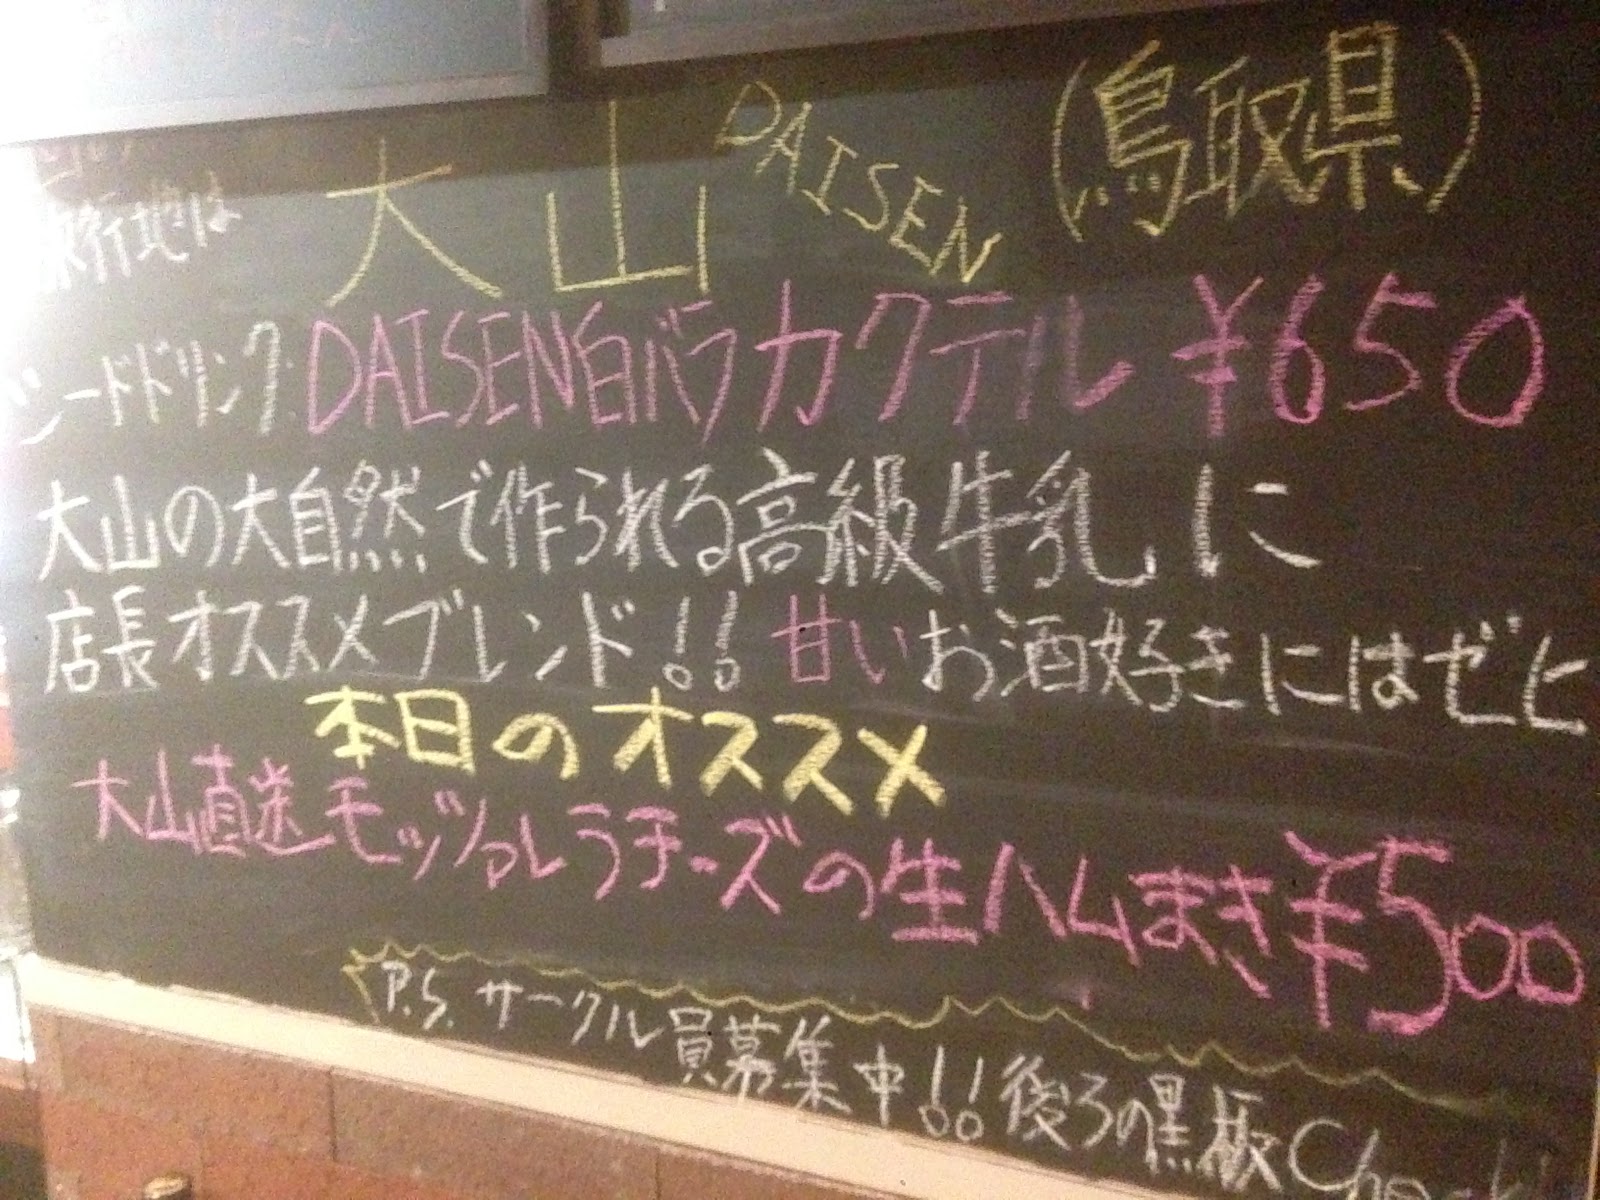 旅行地は 大山 DAISEN (鳥取県)
シードドリンク:DAISEN白バラカクテル ¥650
大山の大自然で作られる高級牛乳に
店長オススメブレンド!! 甘いお酒好きにはゼヒ
本日のオススメ
大山直送モッツァレラチーズの生ハムまき¥500
P.S. サークル員募集中!! 後ろの黒板